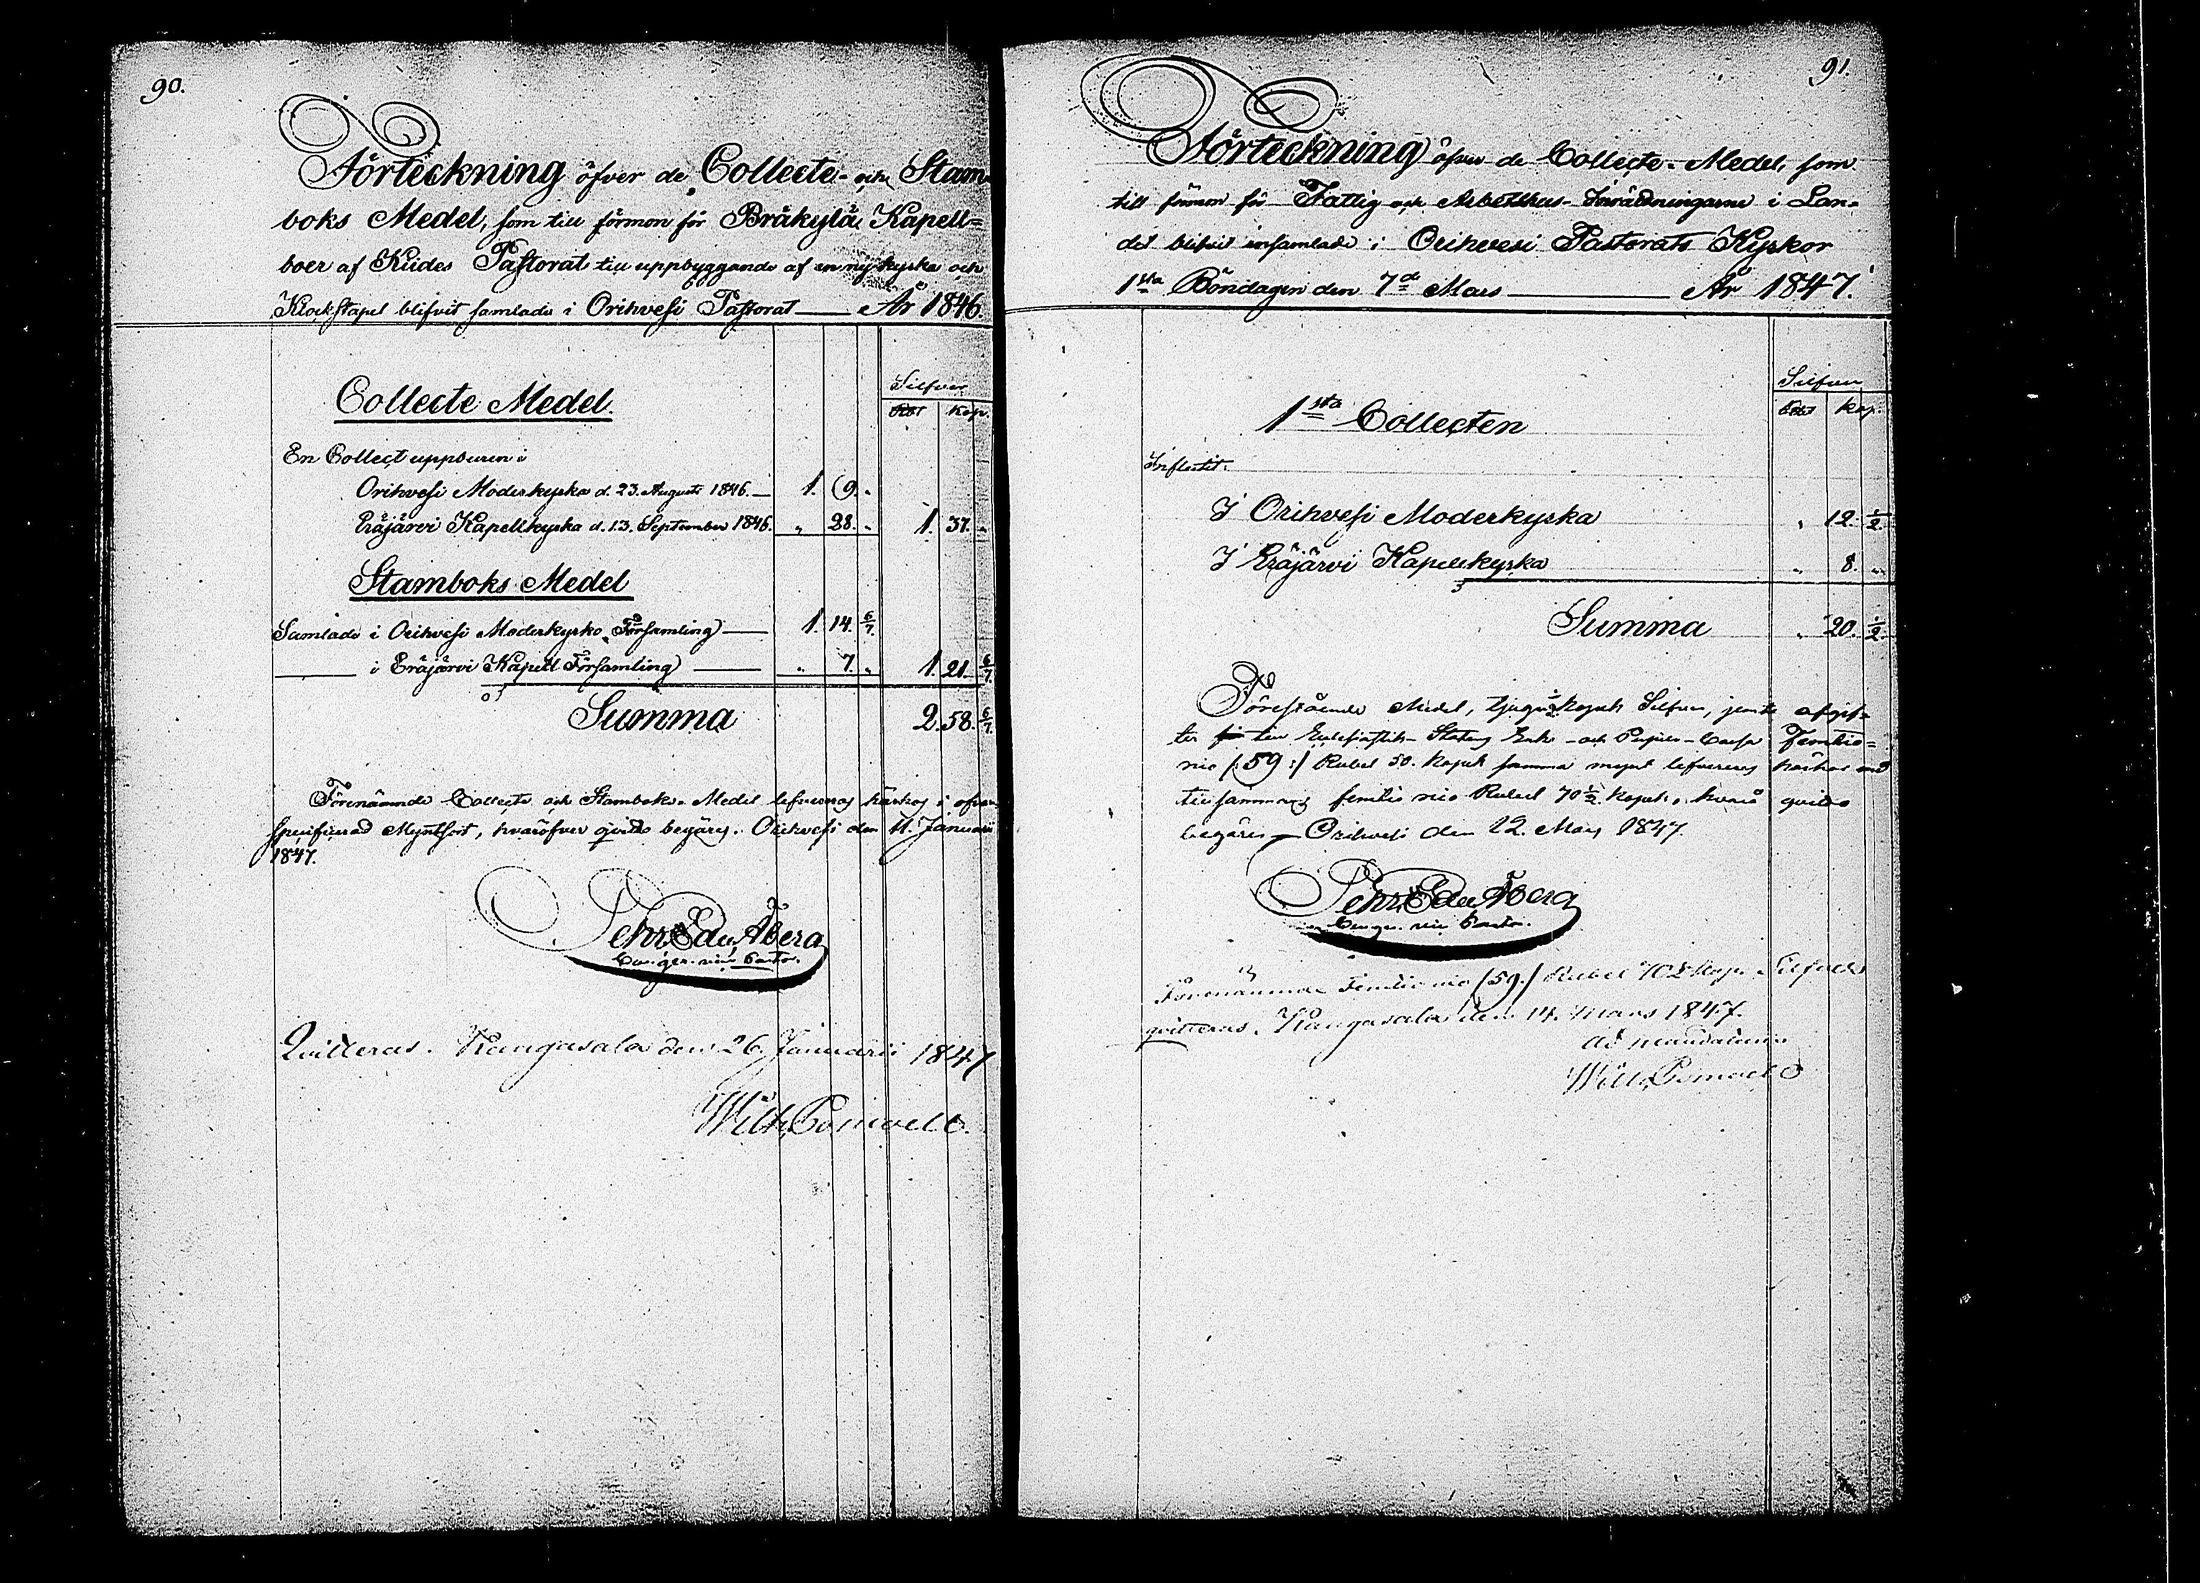 90.
Förteckning öfver de Collecte- och Stam
boks Medel, som till förmon för Bråkylä Kapell=
boer af Kudes Pastorat till uppbyggande af en ny kyrka och
Klockstapel blifvit samlade i Orihvesi Pastorat — År 1846.
Silfver
Rbl Kop.
Collecte Medel.
En Collect uppburen i
Orihvesi Moderkyrka d. 23. Augusti 1846. — 1. 9. "
Eräjärvi Kapellkyrka d. 13. September 1846. " 28. " 1. 37. "
Stamboks Medel
Samlade i Orihvesi Moderkyrko Församling — 1. 14. 6/7.
— i Eräjärvi Kapell Församling — " 7. " 1. 21. 6/7.
Summa 2. 58. 6/7.
Förenämnde Collecte och Stamboks-Medel lefvereras härhos i ofvan
specificerad Myntsort, hvaröfver qvitto begäres. Orihvesi den 11. Januarii
1847.
Pehr Edu. Åberg
Qvitteras. Kangasala den 26. Januarii 1847
Wilh. Pomoell.
91.
Förteckning öfver de Collecte-Medel, som
till förmon för Fattig och Arbetshus-Inrättningarne i Lan-
det blifvit insamlade i Orihvesi Pastorats Kyrkor
1sta Böndagen den 7d Mars — År 1847.
Silfver
Rbl Kop.
1sta Collecten
Influtit:
I Orihvesi Moderkyrka " 12. 1/2
I Eräjärvi Kapellkyrka " 8. "
Summa " 20. 1/2.
Förestående Medel, tjugu 1/2 Kopek Silfver, jemte afgif-
ter till Ecclesiastik-Statens Enk- och Pupill-Cassa Femtio=
nio /: 59 :/ Rubel 50. Kopek samma mynt lefvereras härhos med
tillsammans femtio nio Rubel 70 1/2 Kopek, hvarå qvitto
begäres — Orihvesi den 12. Mars 1847.
Pehr Edu. Åberg
Förenämnde Femtio nio /59./ Rubel 70 1/2 Kop. Silfver
qvitteras. Kangasala den 14. Mars 1847.
Ad mandatum
Wilh. Pomoell